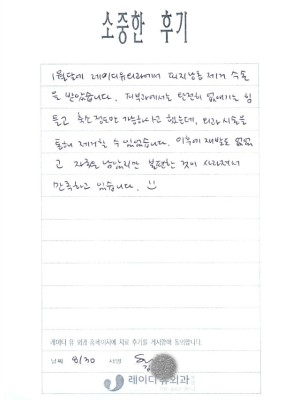 소중한 후기
1월달에 레이디유외과에서 피지낭종 제거 수술
을 받았습니다. 피부과에서는 완전히 없애기는 힘
들고 축소 정도만 가능하다고 했는데, 외과 시술을
통해 제거할 수 있었습니다. 이후에 재발도 없었
고 자국은 남았지만 불편한 것이 사라져서
만족하고 있습니다.
레이디 유 외과 홈페이지에 치료 후기를 게시함에 동의합니다.
날짜 8/30 서명
레이디유외과